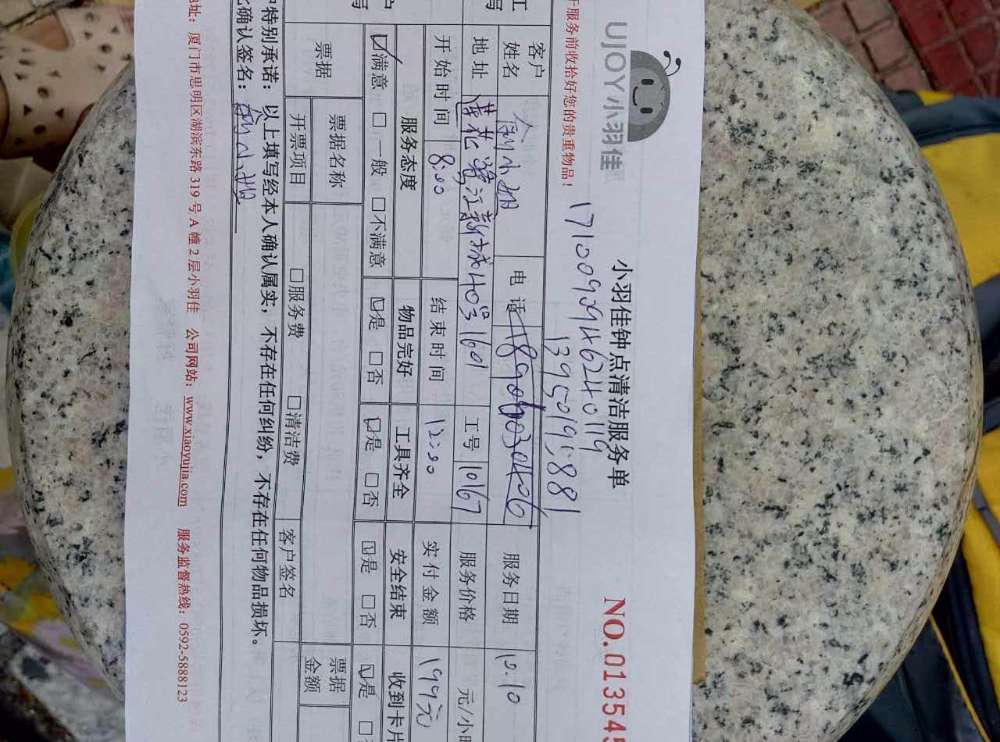 UJOY小羽佳
小羽佳钟点清洁服务单
NO.013545
服务前收拾好您的贵重物品！
1710092946240119
13950191881
客户姓名 电话 服务日期 10.10
地址 工号 10167 服务价格 元/小时
开始时间 8:00 结束时间 12:00 实付金额 199元
服务态度 物品完好 工具齐全 安全结束 收到卡片
满意 一般 不满意 是 否 是 否 是 否 是
票据 票据名称 票据金额
开票项目 服务费 清洁费 客户签名
特别承诺：以上填写经本人确认属实，不存在任何纠纷，不存在任何物品损坏。
确认签名：
地址：厦门市思明区湖滨东路 319 号 A 幢 2 层小羽佳 公司网站：www.xiaoyujia.com 服务监督热线：0592-5888123